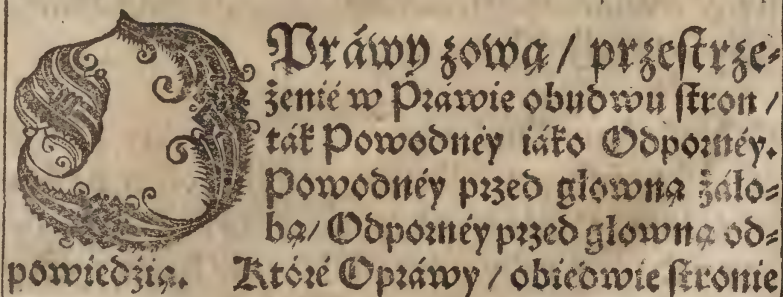 OPráwy zową / przeſtrze⸗
żenié w Práwie obudwu ſtron /
ták Powodnéy iáko Odpornéy.
Powodnéy przed głowną żáło⸗
bą / Odpornéy przed głowną od⸗
powiedzią. Któré Opráwy / obiedwie ſtronie